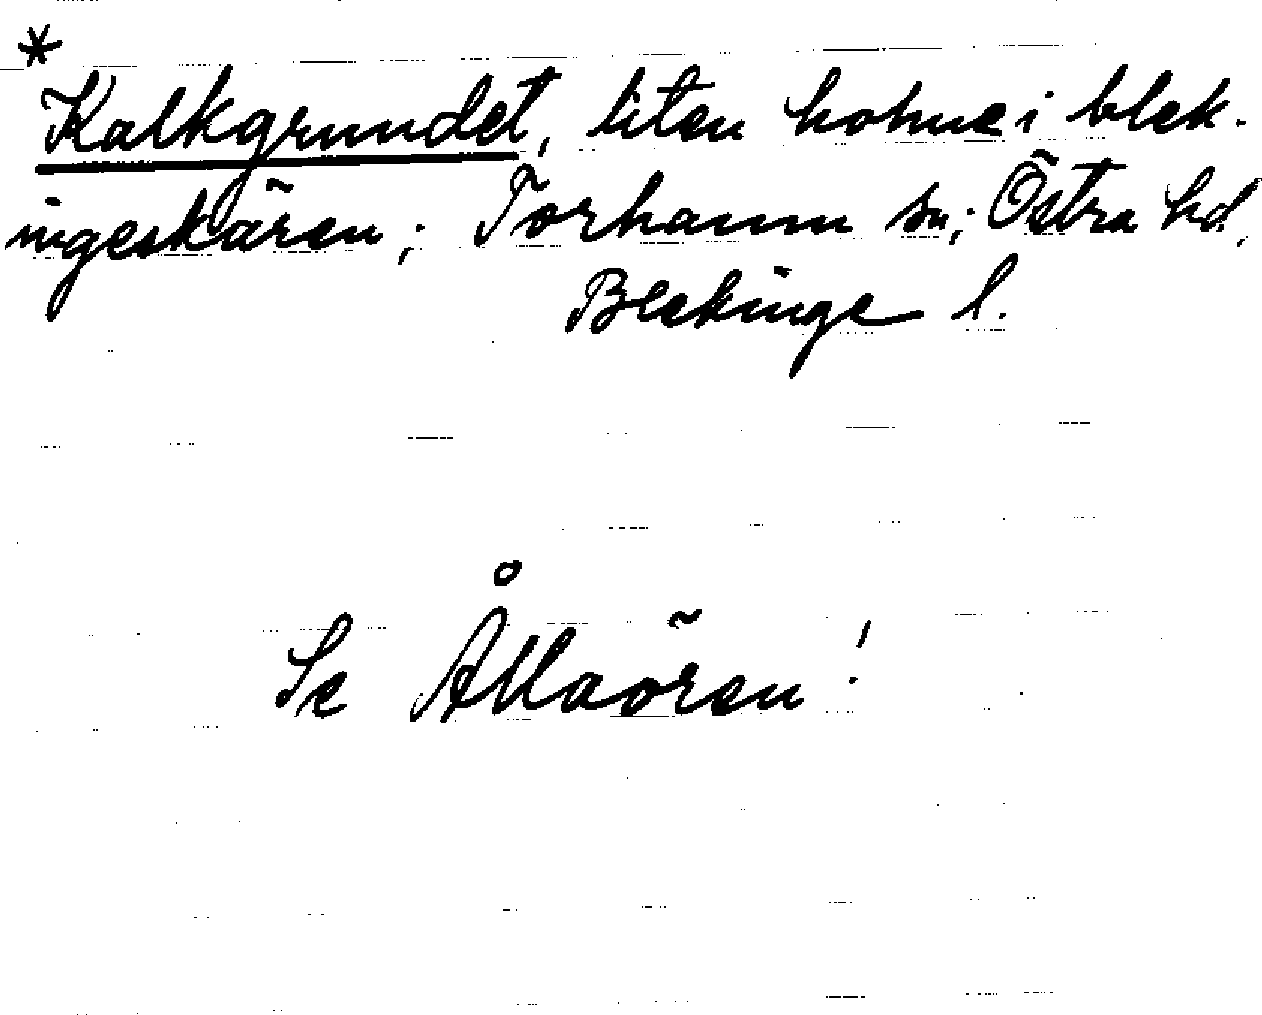 *
Kalkgrundet, liten holme i blek-
ingeskären; Torhamn sn; Östra hd,
Blekinge l.
Se Ållaören!